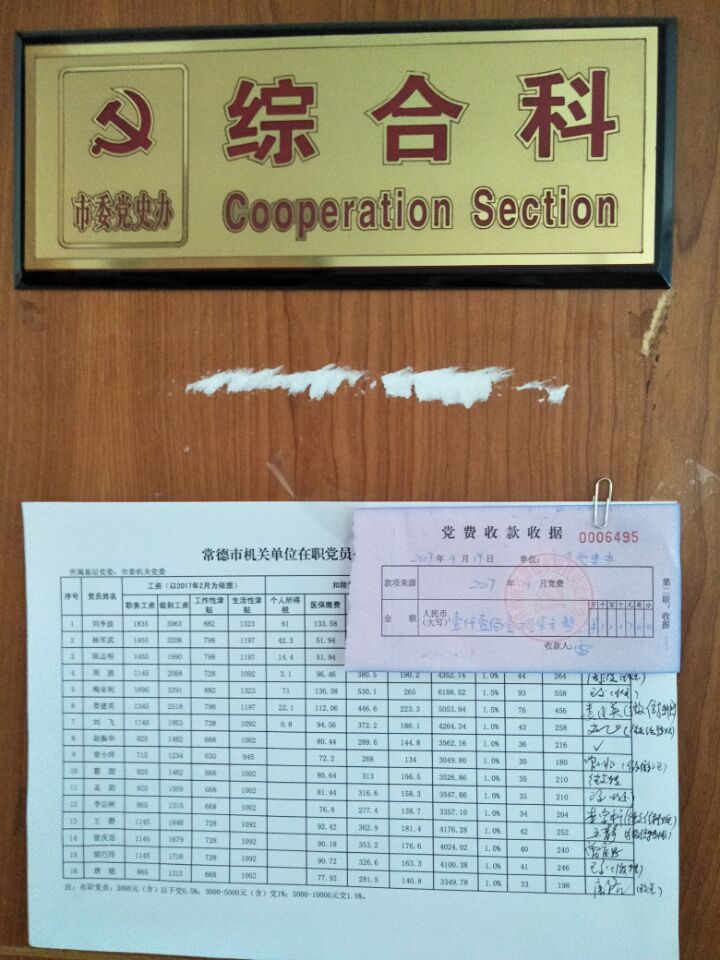 综合科
市委党史办
Cooperation Section
党费收款收据
0006495
2017年4月19日 单位:
款项来源 2017年 月党费
金额 人民币(大写)
收款人:
第二联:收据
常德市机关单位在职党员
所属基层党委:市委机关党委
序号 党员姓名 工资(以2017年2月为依据)
职务工资 级别工资 工作性津贴 生活性津贴 个人所得税 医保缴费
1 1835 3063 882 1323 61 133.58
2 杨军武 1455 3208 798 1197 42.3 51.94
3 1455 1990 798 1197 14.4 51.94
4 周 波 1145 2058 728 1092 3.1 96.46 380.5 190.2 4352.74 1.0% 44 264
5 1695 3291 882 1323 71 136.38 530.1 265 6188.52 1.5% 93 558
6 娄建英 1345 2518 798 1197 22.1 112.06 446.6 223.3 5053.94 1.5% 76 456
7 刘 飞 1145 1953 728 1092 0.8 94.56 372.2 186.1 4264.34 1.0% 43 258
8 赵振华 925 1482 668 1002 80.44 289.6 144.8 3562.16 1.0% 36 216
9 曾小玲 715 1234 630 945 72.2 268 134 3049.80 1.0% 30 180
10 925 1482 668 1002 80.64 313 156.5 3526.86 1.0% 35 210
11 925 1509 668 1002 81.44 316.6 158.3 3547.66 1.0% 35 210
12 李宗柯 865 1315 668 1002 76.8 277.4 138.7 3357.10 1.0% 34 204
13 王 静 1145 1848 728 1092 92.42 362.9 181.4 4176.28 1.0% 42 252
14 曾庆思 1145 1679 728 1092 90.18 353.2 176.6 4024.02 1.0% 40 240
15 胡巧玲 1145 1716 728 1092 90.72 326.6 163.3 4100.38 1.0% 41 246
16 唐 铭 865 1315 668 1002 77.92 281.5 140.8 3349.78 1.0% 33 198
注:在职党员:3000元(含)以下交0.5%;3000-5000元(含)交1%;5000-10000元交1.5%。